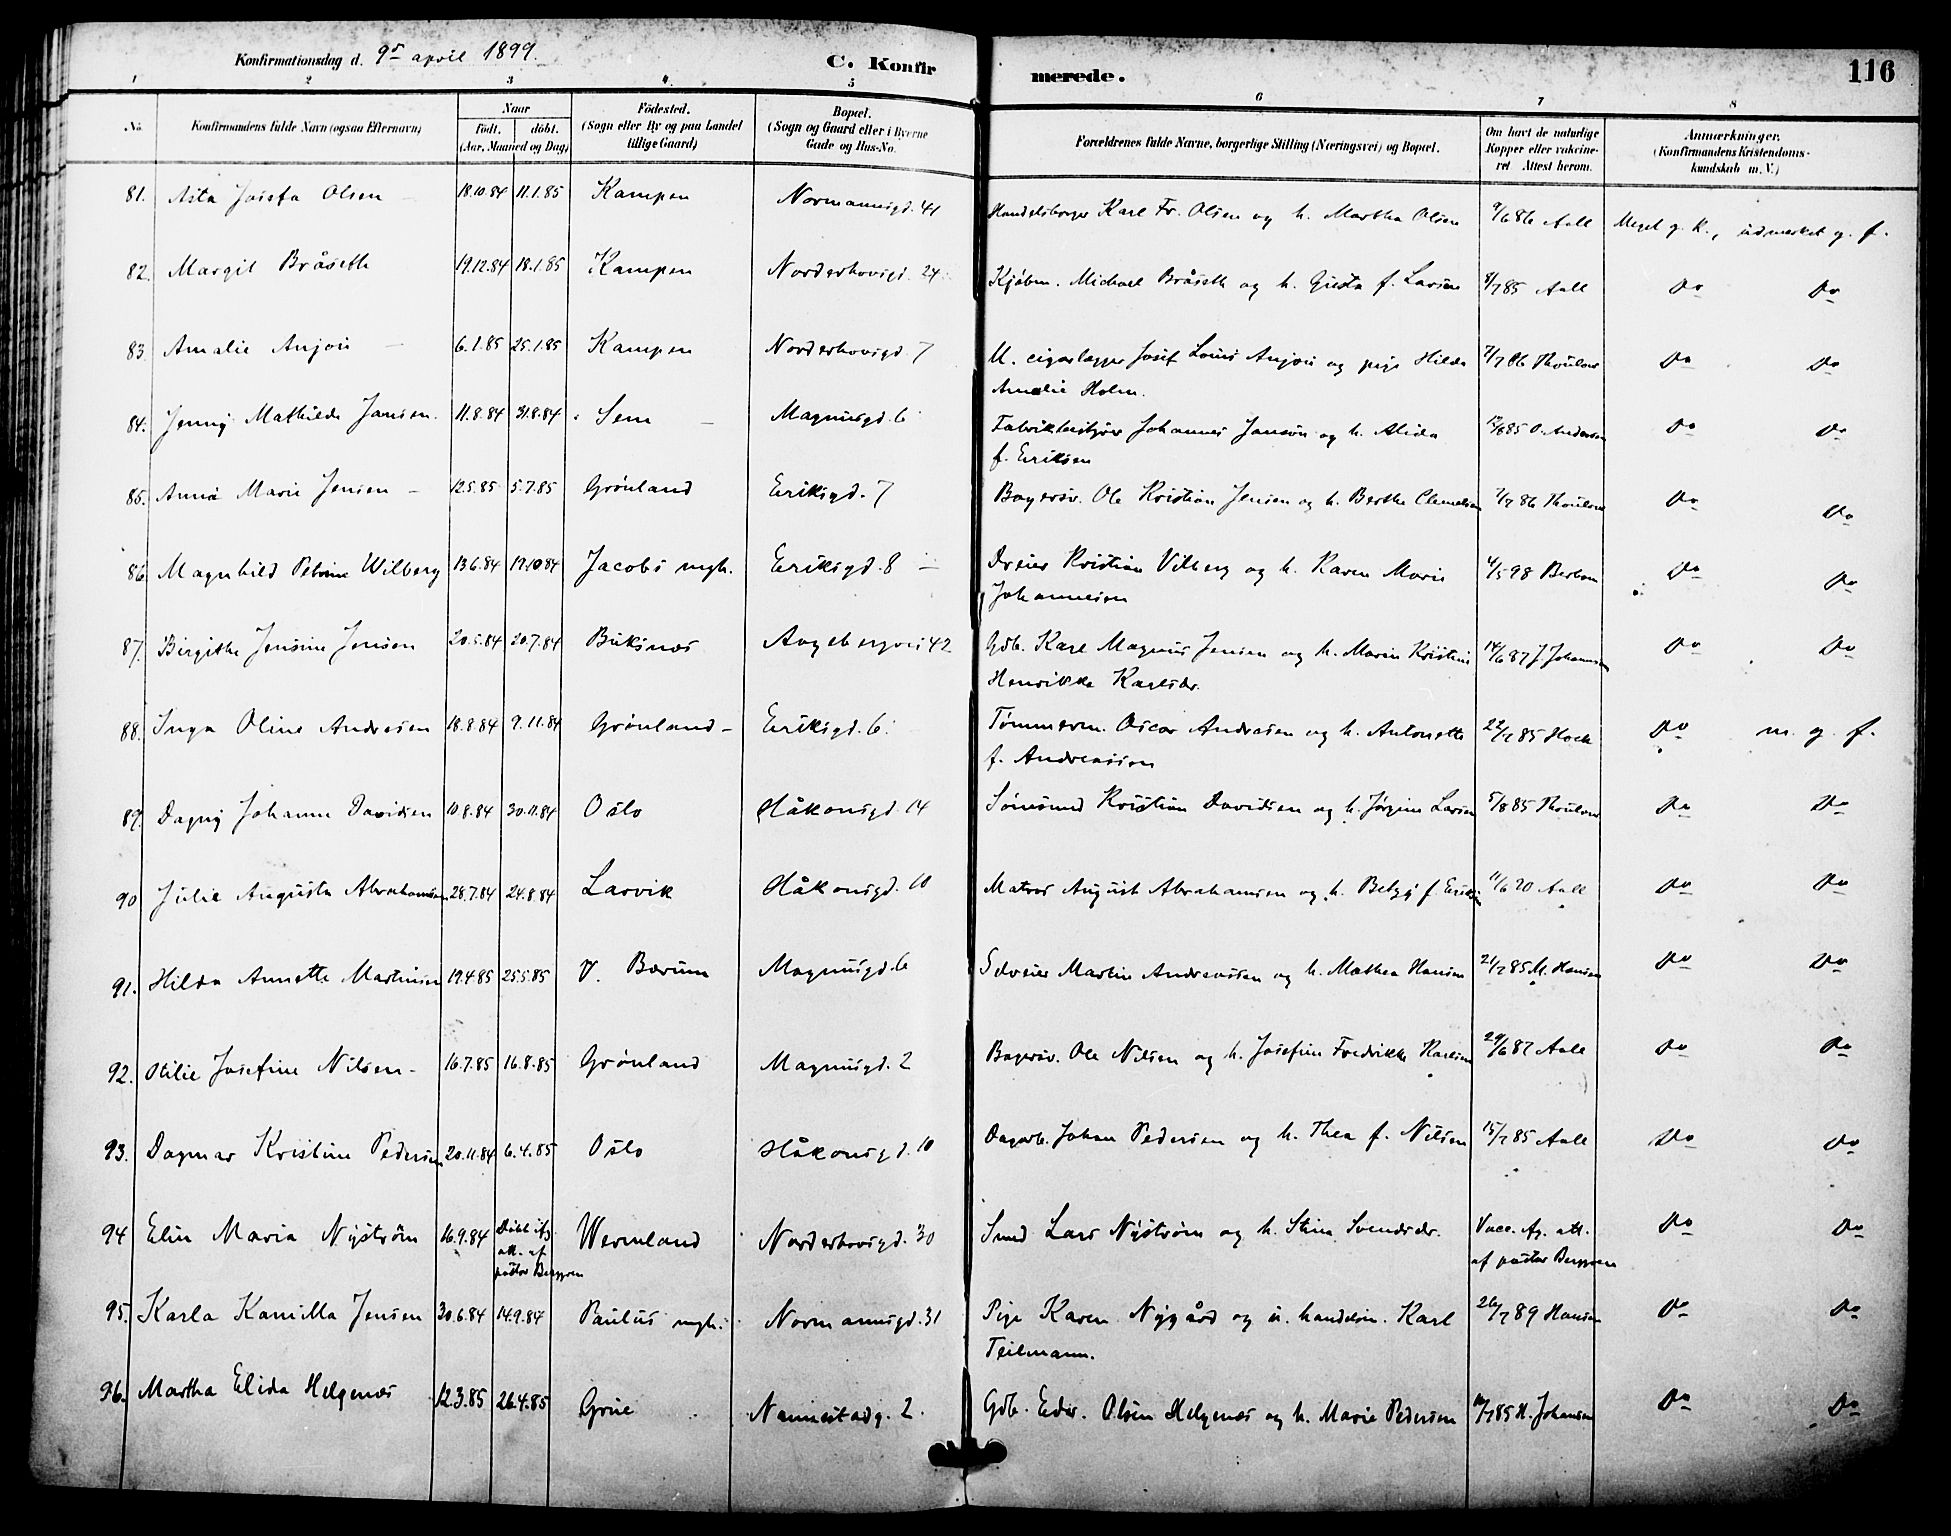 Konfirmationsdag d. 9de april 1899.
C. Konfirmerede.
116
1 2 3 4 5 6 7 8
No.
Konfirmandens fulde Navn (ogsaa Efternavn)
Naar
født. døbt.
(Aar, Maaned og Dag)
Fødested.
(Sogn eller By og paa Landet
tillige Gaard)
Bopæl.
(Sogn og Gaard eller i Byerne
Gade og Hus-No.
Forældrenes fulde Navne, borgerlige Stilling (Næringsvei) og Bopæl.
Om havt de naturlige
Kopper eller vakcine-
ret Attest herom.
Anmærkninger.
(Konfirmandens Kristendoms-
kundskab m. V.)
81. Asta Josefa Olsen 18.10.84 11.1.85 Kampen Normannsgd. 41 Handelsborger Karl Fr. Olsen og h. Martha Olsen 9/6 86 Aall Meget g. K., udmerket g. f.
82. Margit Bråseth 19.12.84 18.1.85 Kampen Norderhovsgd. 24 Kjøbm. Michael Bråseth og h. Gusta f. Larsen 8/7 85 Aall Do Do
83. Amalie Anjou 6.1.85 25.1.85 Kampen Norderhovsgd. 7 U. cigarlægger Josef Louis Anjou og pige Hilda 7/7 86 Thoulow Do Do
Amalie Holm.
84. Jenny Mathilde Jansen. 11.8.84 31.8.84 Sem Magnusgd. 6 Johannes Janson og h. Alida 85 O. Andersen Do Do
f. Eriksen
85. Anna Marie Jensen 12.5.85 5.7.85 Grønland Eriksgd. 7 Bagersv. Ole Kristian Jensen og h. Berthe 7/7 86 Thoulow Do Do
86. Magnhild Petrine Wilberg 13.6.84 19.10.84 Jacobs mgh. Eriksgd. 8 Dreier Kristian Vilberg og h. Karen Marie 4/5 98 Do Do
Johannesen
87. Birgithe Jensine Jensen 20.5.84 20.7.84 Buksnæs Aagebergvei 42 Gdb. Karl Magnus Jensen og h. Maren Kristine 14/6 87 J Johannsen Do Do
Henrikka Karlsdr.
88. Inga Oline Andresen 18.8.84 9.11.84 Grønland Eriksgd. 6. Tømmerm. Oscar Andresen og h. Antonette 22/7 85 Hock Do m. g. f.
f. Andreassen
89. Dagny Johanne Davidsen 10.8.84 30.11.84 Oslo Håkonsgd. 14 Sømand Kristian Davidsen og h. Jørgine Larsen 5/8 85 Thoulow Do Do
90 Julie Augusta Abrahamsen 28.7.84 24.8.84 Larvik Håkonsgd. 10 Matros August Abrahamsen og h. Betzy f. 11/6 90 Aall Do Do
91. Hilda Annette Martinsen 19.4.85 25.5.85 V. Bærum Magnusgd. 6 Martin Andreassen og h. Mathea Hansen 21/7 85 M. Hansen Do Do
92. Otilie Josefine Nilsen 16.7.85 16.8.85 Grønland Magnusgd. 2 Bagersv. Ole Nilsen og h. Josefine Fredrikke Karlsen 29/6 87 Aall Do Do
93. Dagmar Kristine Pedersen 20.11.84 6.4.85 Oslo Håkonsgd. 10 Dagarb. Johan Pedersen og h. Thea f. Nilsen 15/7 85 Aall Do Do
94 Elin Maria Nyström 16.9.84 Døbt ifg. Wermland Norderhovsgd. 30 Smed Lars Nyström og h. Stina Svendsdr. Vacc. ifg. att. Do Do
att. af
pastor Berggren af pastor Berggren
95. Karla Kamilla Jensen 30.6.84 14.9.84 Paulus mgh. Normannsgd. 31 Pige Karen Nygård og u. handelsm. Karl 26/7 89 Hansen Do Do
Teilmann.
96. Martha Elida Helgenæs 12.3.85 26.4.85 Grue Nannestadg. 2. Gdb. Edv. Olsen Helgenæs og h. Marie Pedersen 85 H. Johansen Do Do